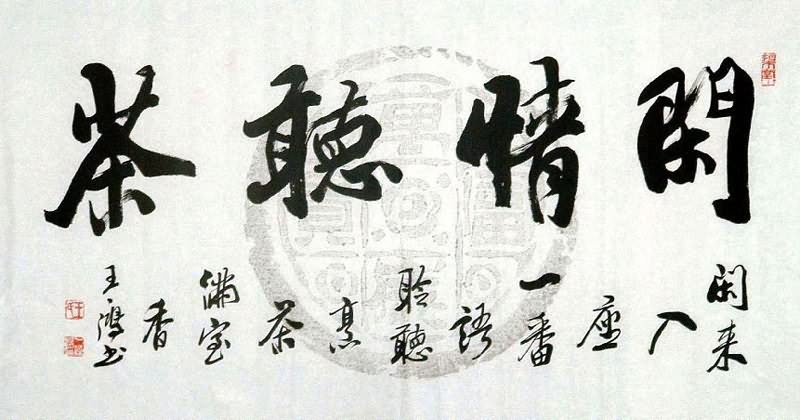 閑情聽茶
闲来
入
座
一番
語
聆聽
烹
茶
滿室
香
王鴻书